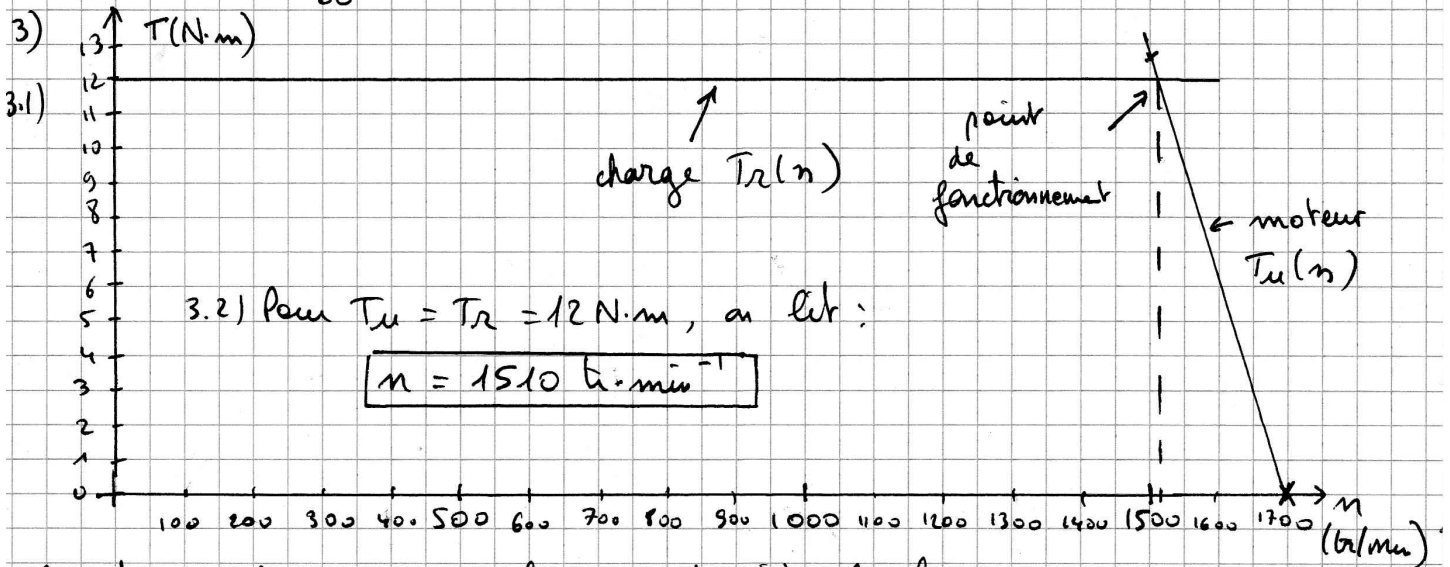 3)
T(N·m)
13
12
3.1)
11
10
9
8
7
6
5
4
3
2
1
0
charge Tr(n)
point
de
fonctionnement
← moteur
Tu(n)
3.2) Pour Tu = Tr = 12 N·m, on lit :
n = 1510 tr·min⁻¹
100 200 300 400 500 600 700 800 900 1000 1100 1200 1300 1400 1500 1600 1700
n
(tr/min)